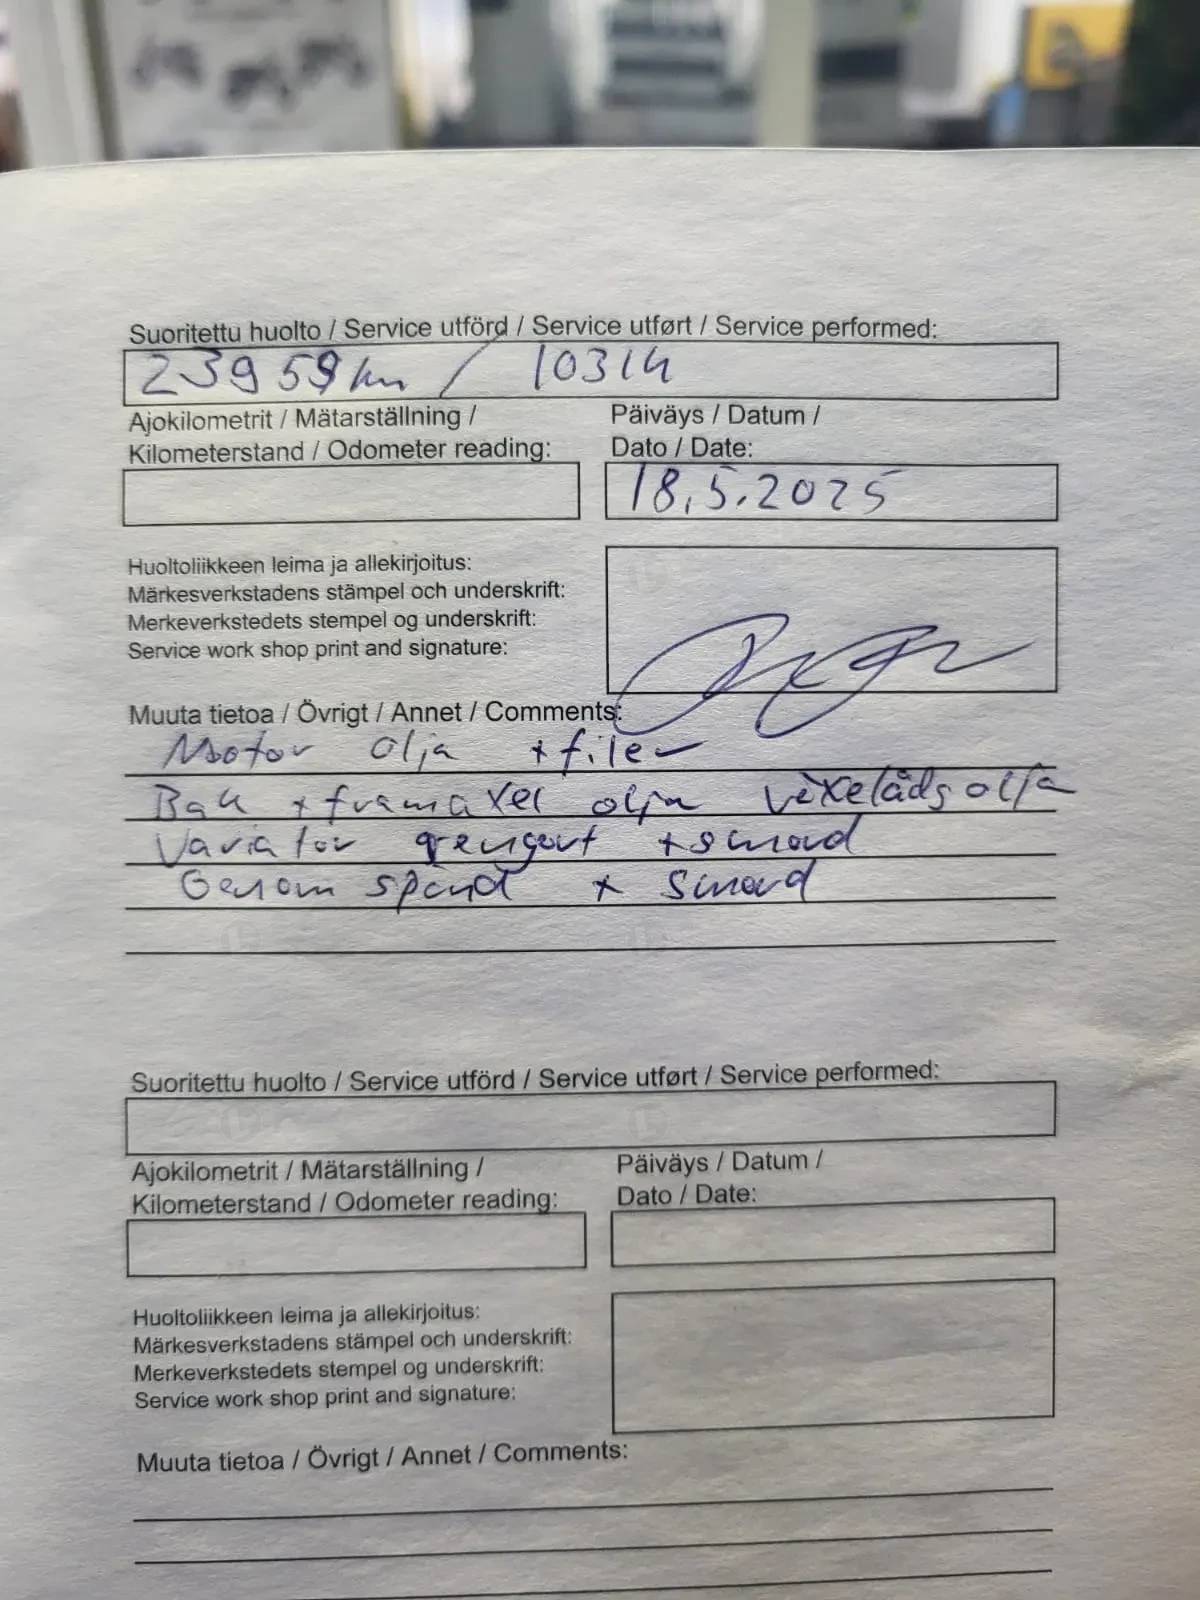 Suoritettu huolto / Service utförd / Service utført / Service performed:
23959 km / 1031h
Ajokilometrit / Mätarställning /
Kilometerstand / Odometer reading:
Päiväys / Datum /
Dato / Date:
18.5.2025
Huoltoliikkeen leima ja allekirjoitus:
Märkesverkstadens stämpel och underskrift:
Merkeverkstedets stempel og underskrift:
Service work shop print and signature:
Muuta tietoa / Övrigt / Annet / Comments:
Motor olja + filer
Bak + framaxel olja växelådsolja
Variator rengort + smord
Genom spänd + smord
Suoritettu huolto / Service utförd / Service utført / Service performed:
Ajokilometrit / Mätarställning /
Kilometerstand / Odometer reading:
Päiväys / Datum /
Dato / Date:
Huoltoliikkeen leima ja allekirjoitus:
Märkesverkstadens stämpel och underskrift:
Merkeverkstedets stempel og underskrift:
Service work shop print and signature:
Muuta tietoa / Övrigt / Annet / Comments: